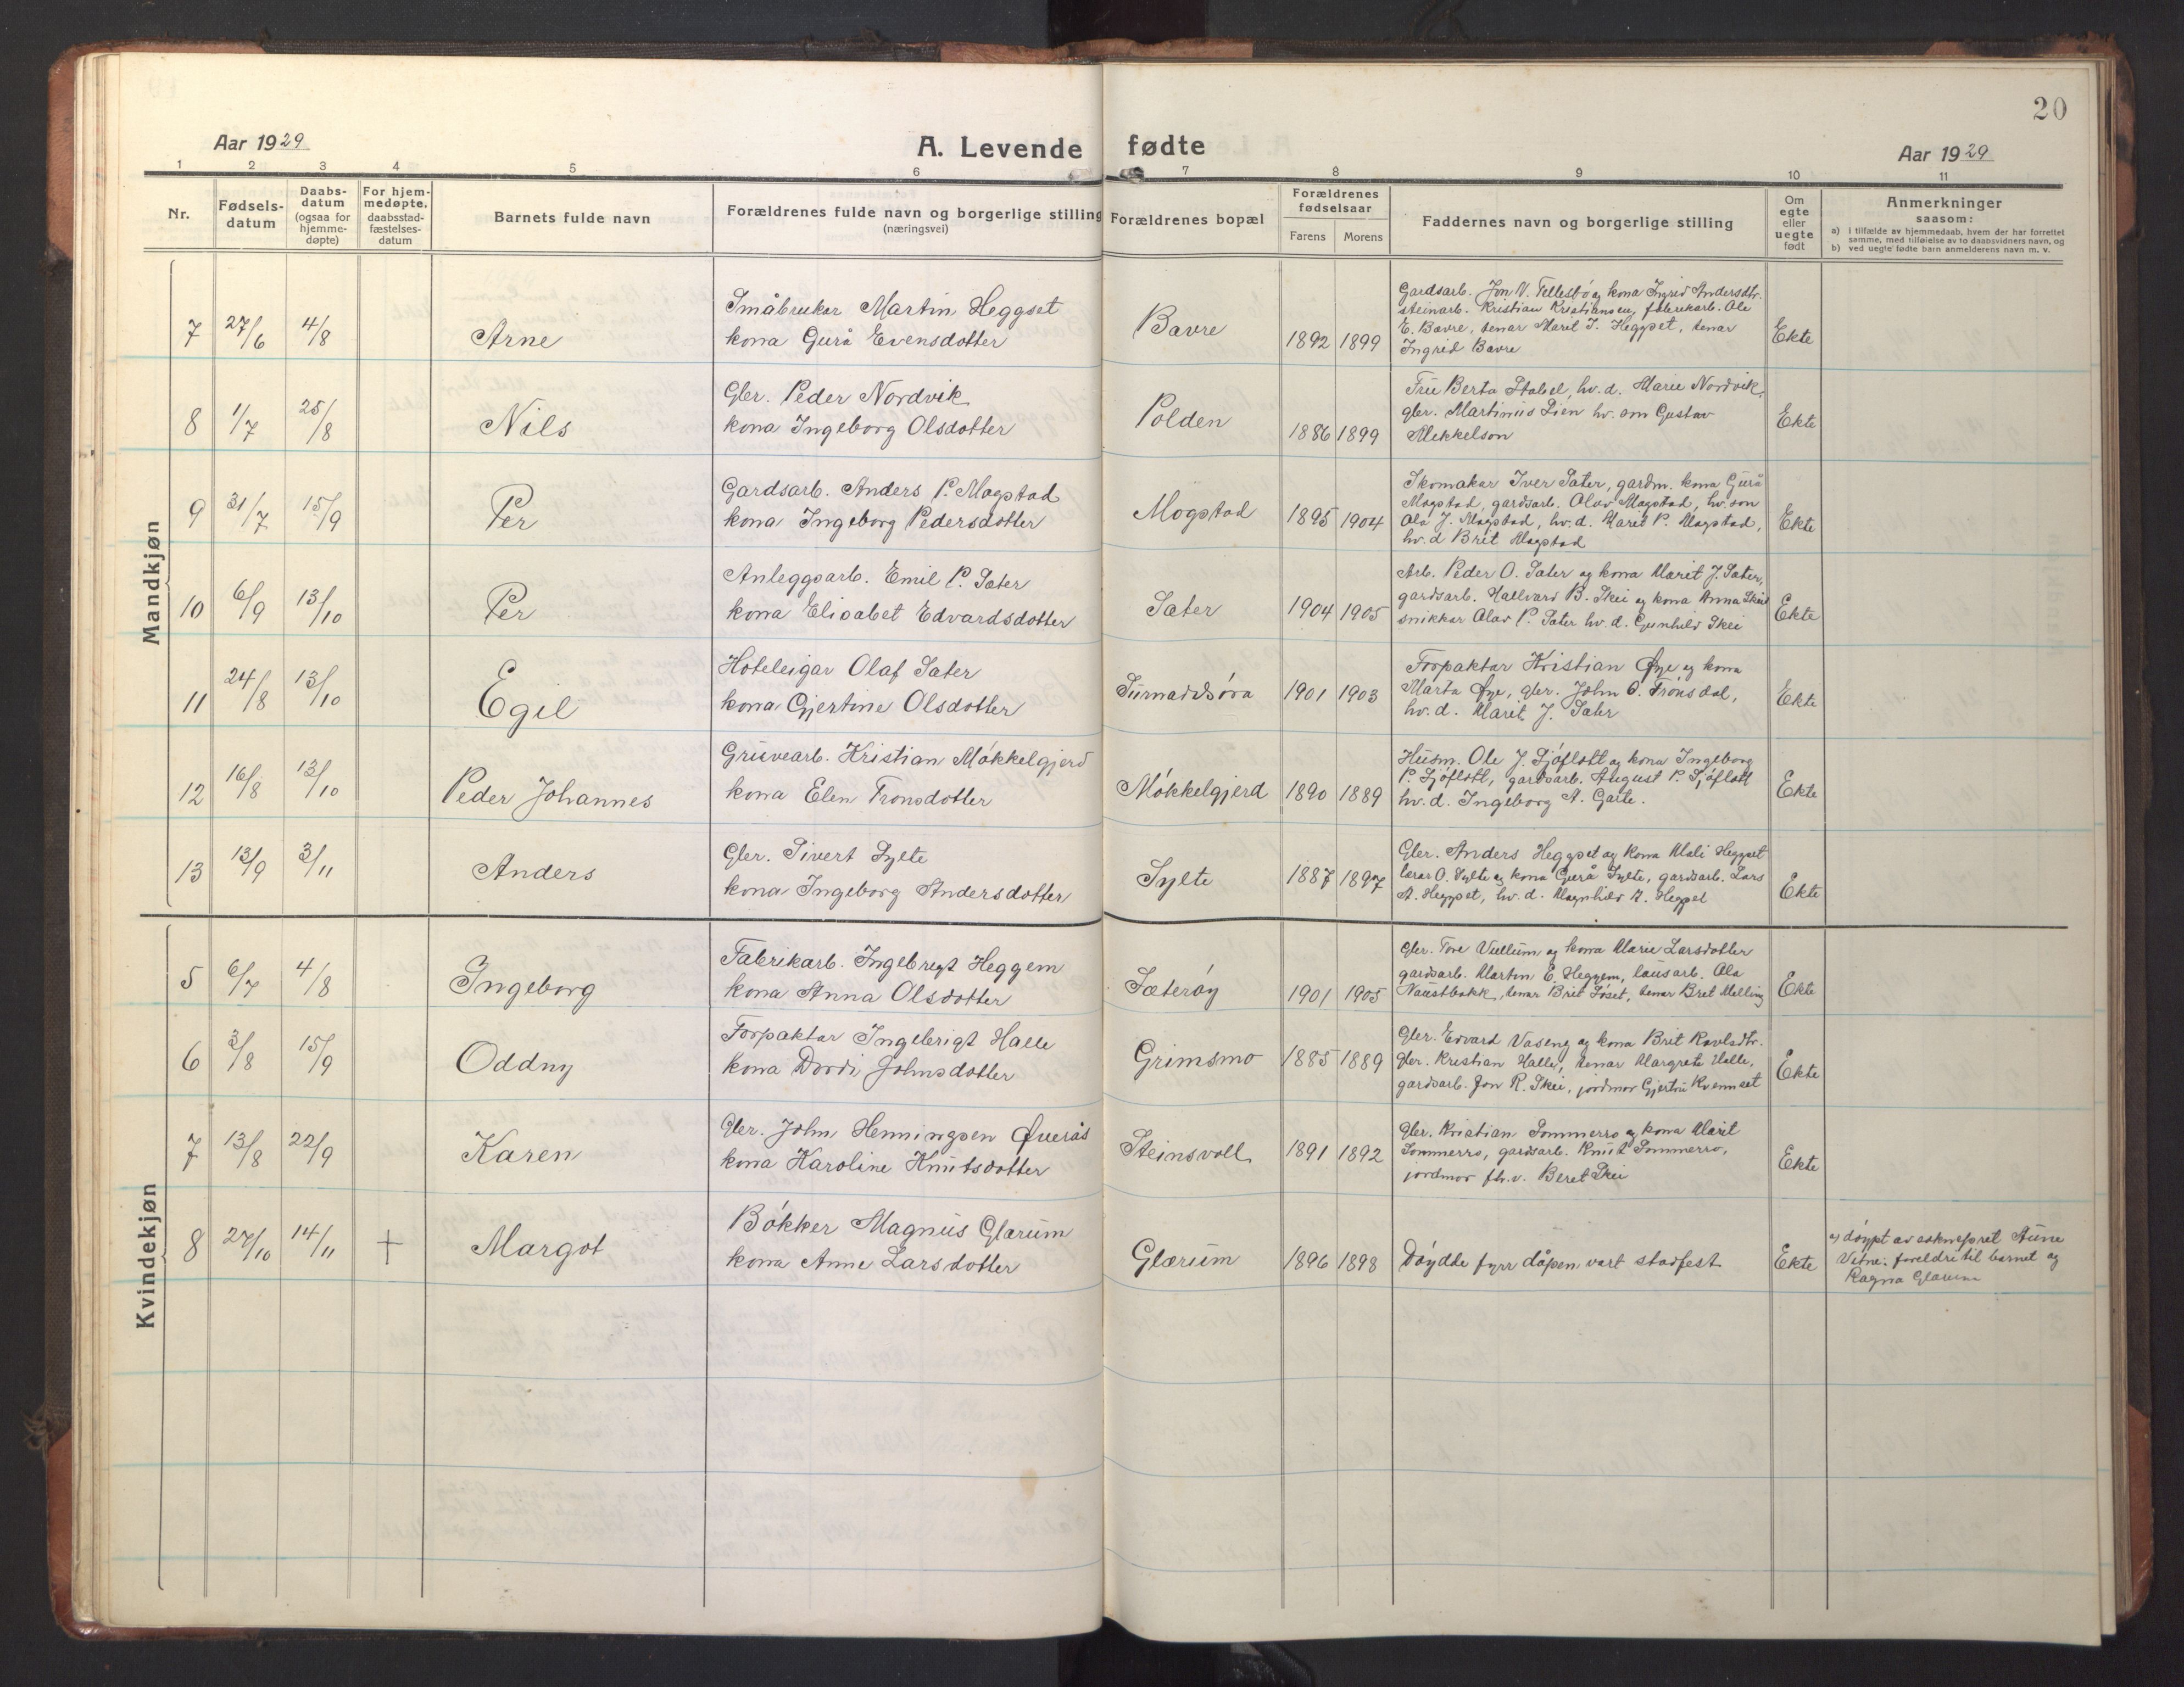 20
Aar 1929
A. Levende fødte
Aar 1929
1 2 3 4 5 6 7 8 9 10 11
Nr.
Fødsels-
datum
Daabs-
datum
(ogsaa for
hjemme-
døpte)
For hjem-
medøpte.
daabsstad-
fæstelses-
datum
Barnets fulde navn
Forældrenes fulde navn og borgerlige stilling
(næringsvei)
Forældrenes bopæl
Forældrenes
fødselsaar
Farens Morens
Faddernes navn og borgerlige stilling
Om
egte
eller
uegte
født
Anmerkninger
saasom:
a) i tilfælde av hjemmedaab, hvem der har forrettet
samme, med tilføielse av to daabsvidners navn, og
b) ved uegte fødte barn anmelderens navn m. v.
Mandkjøn
7 27/6 4/8 Arne
Småbrukar Martin Heggset
kona Gurå Evensdotter
Bævre 1892 1899
Gardsarb. Jon V. Telleslbø og kona Ingrid Andersdtr.
steinarb. Kristian Kristiansen, fabrikarb. Ole
E. Bævre, tenar Marit J. Heggset, tenar
Ingrid Bævre
Ekte
8 1/7 25/8 Nils
Gbr. Peder Nordvik
kona Ingeborg Olsdotter
Polden 1886 1899
Fru Berta Stabel, hv.d. Marie Nordvik,
gbr. Martinus Lien hv. son Gustav
Mekkelson
Ekte
9 31/7 15/9 Per
Gardsarb. Anders P. Mogstad
kona Ingeborg Pedersdotter
Mogstad 1895 1904
Skomakar Iver Sæter, gardm. kona Gurå
Mogstad, gardsarb. Olav Mogstad, hv. son
Ola J. Mogstad, hv.d. Marit P. Mogstad,
hv.d Brit Mogstad
Ekte
10 6/9 13/10 Per
Anleggsarb. Emil P. Sæter
kona Elisabet Edvardsdotter
Sæter 1904 1905
Arb. Peder O. Sæter og kona Marit J. Sæter,
gardsarb. Hallvard B. Skei og kona Anna Skei
snikkar Olav P. Sæter hv.d. Gunhild Skei
Ekte
11 24/8 13/10 Egil
Hoteleigar Olaf Sæter
kona Gjertine Olsdotter
Surnadsøra 1901 1903
Forpaktar Kristian Øye og kona
Marta Øye, gbr. John O. Trönsdal,
hv.d. Marit J. Sæter
Ekte
12 16/8 13/10 Peder Johannes
Gruvearb. Kristian Mókkelgjerd
kona Elen Tronsdotter
Mókkelgjerd 1890 1889
Husm. Ole J. Sjöflott og kona Ingeborg
P. Sjöflott, gardsarb. August P. Sjöflott
hv.d. Ingeborg A. Garte.
Ekte
13 13/9 3/11 Anders
Gbr. Sivert Sylte
kona Ingeborg Andersdotter
Sylte 1887 1897
Gbr. Anders Heggset og kona Mali Heggset
lærar O. Sylte og kona Gurå Sylte, gardsarb. Lars
A. Heggset, hv.d. Magnhild A. Heggset
Ekte
Kvindekjøn
5 6/7 4/8 Ingeborg
Fabrikarb. Ingebrigt Heggem
kona Anna Olsdotter
Sæterøy 1901 1905
Gbr. Tore Vullum og kona Marie Larsdotter
gardsarb. Marten E. Heggem, lausarb. Ola
Naustbakk, tenar Brit Søset, tenar Bret Melling
Ekte
6 3/8 15/9 Oddny
Forpaktar Ingebrigt Halle
kona Dordi Johnsdotter
Grimsmo 1885 1889
Gbr. Edvard Vaseng og kona Brit Ravlsdtr.
Gbr. Kristian Halle, tenar Margrete Halle,
gardsarb. Jon R. Skei, jordmor Gjertru Kvennset
Ekte
7 13/8 22/9 Karen
Gbr. John Henningsen Øverås
kona Karoline Knutsdotter
Steinsvoll 1891 1892
Gbr. Kristian Sommerro og kona Marit
Sommerro, gardsarb. Knut Sommerro,
jordmor fh.v. Beret Skei
Ekte
8 27/10 14/11 + Margot
Bókker Magnus Glærum
kona Anne Larsdotter
Glærum 1896 1898
Dóydde fyrr dåpen vart stadfest
Ekte
a) dóypt av sokneprest Aune
Vitne: foreldre til barnet og
Ragna Glærum